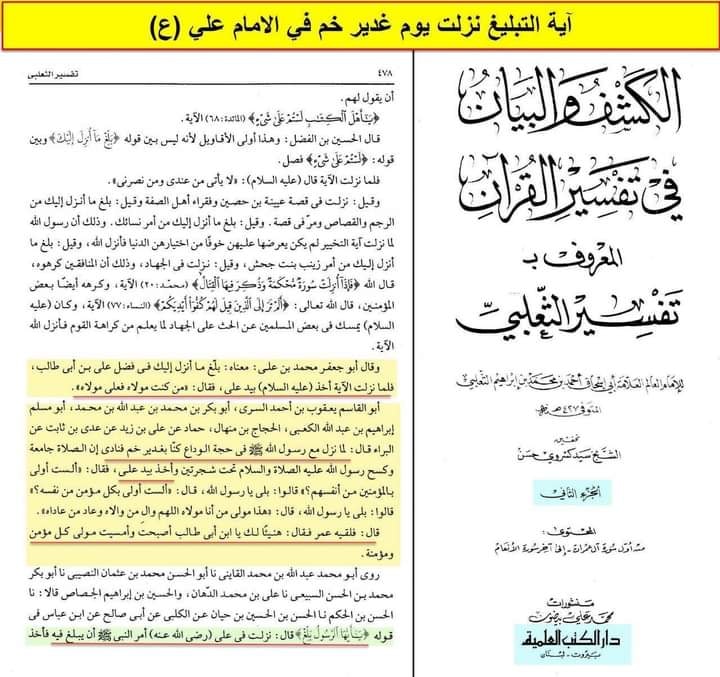 آية التبليغ نزلت يوم غدير خم في الامام علي (ع)
الكشف والبيان
في تفسير القرآن
المعروف بـ
تفسير الثعلبي
للإمام العالم العلامة أبي إسحاق أحمد بن محمد بن إبراهيم الثعلبي
المتوفى ٤٢٧ هـ
تحقيق
الشيخ سيد كسروي حسن
الجزء الثاني
المحتوى:
من أول سورة آل عمران - إلى آخر سورة الأنعام
منشورات
محمد علي بيضون
دار الكتب العلمية
بيروت - لبنان
٤٧٨
تفسير الثعلبي
أن يقول لهم.
﴿يَـٰأَهْلَ ٱلْكِتَـٰبِ لَسْتُمْ عَلَىٰ شَىْءٍ﴾ (المائدة: ٦٨) الآية.
قال الحسين بن الفضل: وهذا أولى الأقاويل لأنه ليس بين قوله ﴿بَلِّغْ مَآ أُنزِلَ إِلَيْكَ﴾ وبين
قوله: ﴿لَسْتُمْ عَلَىٰ شَىْءٍ﴾ فصل.
فلما نزلت الآية قال (عليه السلام): «لا يأتى من عندى ومن نصرنى».
وقيل: نزلت فى قصة عيينة بن حصين وفقراء أهل الصفة وقيل: بلغ ما أنزل إليك من
الرجم والقصاص ومرّ فى قصة. وقيل: بلغ ما أنزل إليك من أمر نسائك. وذلك أن رسول الله
لما نزلت آية التخيير لم يكن يعرضها عليهن خوفًا من اختيارهن الدنيا فأنزل الله، وقيل: بلغ ما
أنزل إليك من أمر زينب بنت جحش، وقيل: نزلت فى الجهاد، وذلك أن المنافقين كرهوه،
قال الله ﴿فَإِذَآ أُنزِلَتْ سُورَةٌ مُّحْكَمَةٌ وَذُكِرَ فِيهَا ٱلْقِتَالُ﴾ (محمد: ٢٠) الآية، وكرهه أيضًا بعض
المؤمنين، قال الله تعالى: ﴿أَلَمْ تَرَ إِلَى ٱلَّذِينَ قِيلَ لَهُمْ كُفُّوٓا۟ أَيْدِيَكُمْ﴾ (النساء: ٧٧) الآية، وكان (عليه
السلام) يمسك فى بعض المسلمين عن الحث على الجهاد لما يعلم من كراهة القوم فأنزل الله
الآية.
وقال أبو جعفر محمد بن على: معناه: بلّغ ما أنزل إليك فى فضل على بن أبى طالب،
فلما نزلت الآية أخذ (عليه السلام) بيد على، فقال: «من كنت مولاه فعلى مولاه».
أبو القاسم يعقوب بن أحمد السرى، أبو بكر بن محمد بن عبد الله بن محمد، أبو مسلم
إبراهيم بن عبد الله الكعبى، الحجاج بن منهال، حماد عن على بن زيد عن عدى بن ثابت عن
البراء قال: لما نزل مع رسول الله ﷺ فى حجة الوداع كنّا بغدير خم فنادى إن الصلاة جامعة
وكسح رسول الله عليه الصلاة والسلام تحت شجرتين وأخذ بيد على، فقال: «ألست أولى
بالمؤمنين من أنفسهم؟» قالوا: بلى يا رسول الله، قال: «ألست أولى بكل مؤمن من نفسه؟»
قالوا: بلى يا رسول الله، قال: «هذا مولى من أنا مولاه اللهم وال من والاه وعاد من عاداه».
قال: فلقيه عمر فقال: هنيئًا لك يا ابن أبى طالب أصبحت وأمسيت مولى كل مؤمن
ومؤمنة.
روى أبو محمد عبد الله بن محمد القاينى نا أبو الحسن محمد بن عثمان النصيبى نا أبو بكر
محمد بن الحسن السبيعى نا على بن محمد الدهّان، والحسين بن إبراهيم الجصاص قالا: نا
الحسن بن الحكم نا الحسن بن الحسين بن حيان عن الكلبى عن أبى صالح عن ابن عباس فى
قوله ﴿يَـٰأَيُّهَا ٱلرَّسُولُ بَلِّغْ﴾ قال: نزلت فى على (رضى الله عنه) أمر النبى ﷺ أن يبلغ فيه فأخذ